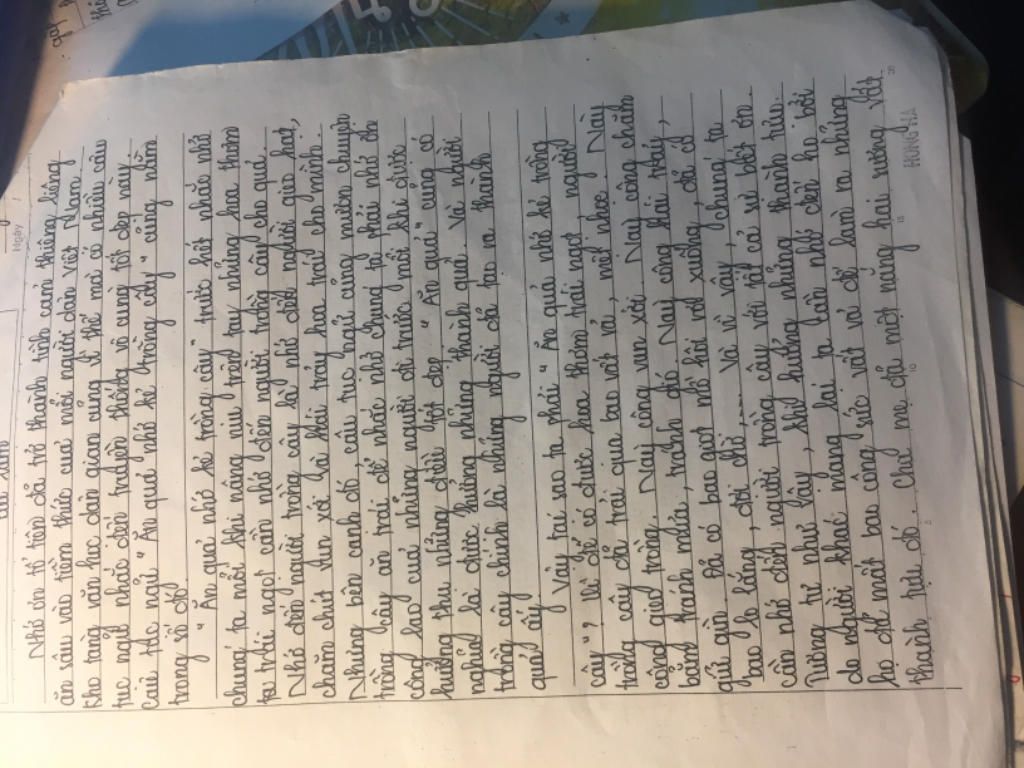 Bài làm
Ngày
Nhớ ơn tổ tiên đã trở thành tình cảm thiêng liêng
ăn sâu vào tiềm thức của mỗi người dân Việt Nam.
Kho tàng văn học dân gian cũng vì thế mà có nhiều câu
tục ngữ nhắc đến truyền thống vô cùng tốt đẹp này.
Câu tục ngữ "Ăn quả nhớ kẻ trồng cây" cũng nằm
trong số đó.
"Ăn quả nhớ kẻ trồng cây" trước hết nhắc nhở
chúng ta mỗi khi nâng niu trên tay những hoa thơm
trái ngọt cần nhớ đến người trồng cây cho quả.
Nhớ đến người trồng cây là nhớ đến người gieo hạt,
chăm chút vun xới gốc khởi trảy hoa trái cho mình.
Nhưng bên cạnh đó, câu tục ngữ cũng mượn chuyện
trồng cây ăn trái để nhắc nhở chúng ta phải nhớ ơn
công lao của những người đi trước mỗi khi được
hưởng thụ những điều tốt đẹp. "Ăn quả" cũng có
nghĩa là được hưởng những thành quả. Và người
trồng cây chính là những người đã tạo ra thành
quả ấy.
Vậy tại sao ta phải "Ăn quả nhớ kẻ trồng
cây", lẽ để có được hoa thơm trái ngọt người
trồng cây đã trải qua bao vất vả, mệt nhọc. Này
công gieo trồng. Này công vun xới. Này công chăm
bẵm tránh mưa, tránh gió. Này công hái trảy,
giữ gìn. Đã có bao giọt mồ hôi rơi xuống, đã có
bao lo lắng, đợi chờ..... Và vì vậy, chúng ta
cần nhớ đến người trồng cây với tất cả sự biết ơn.
Tương tự như vậy, khi hưởng những thành tựu
do người khác mang lại ta cần nhớ đến họ bởi
họ để mất bao công sức vất vả để làm ra những
thành tựu đó. Cha mẹ đã một nắng hai sương vất
HỒNG HÀ
5
10
15
20